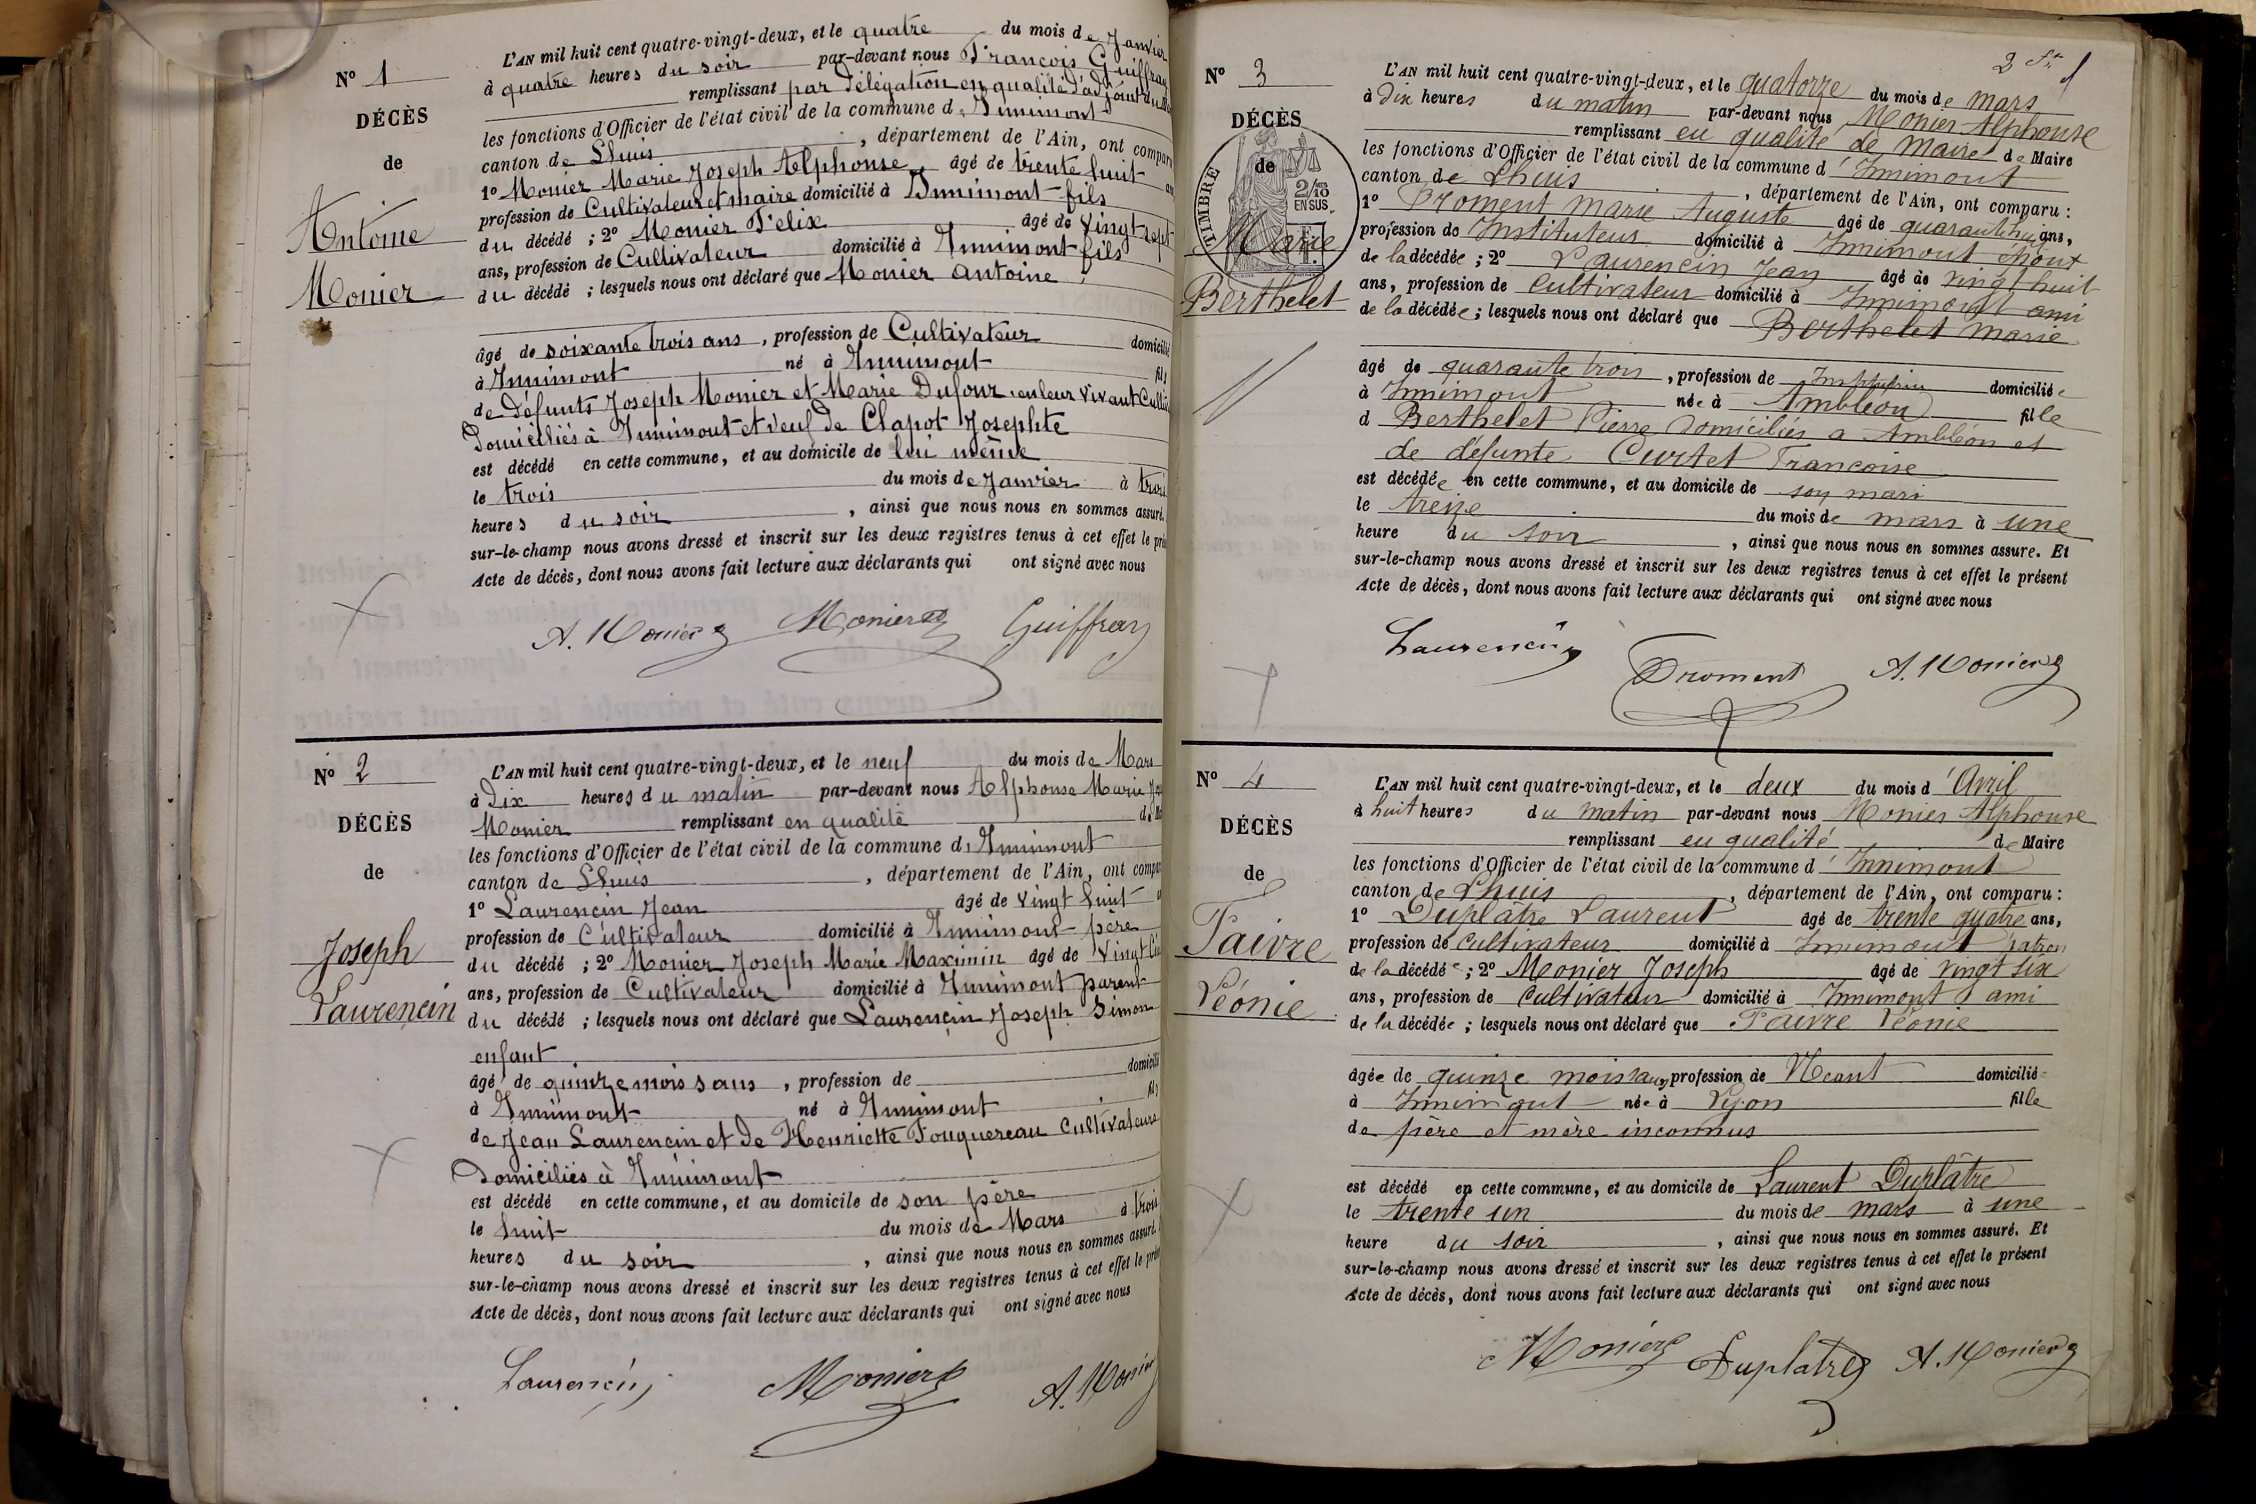 N° 1
DÉCÈS
de
Antoine
Monier
L'AN mil huit cent quatre-vingt-deux, et le quatre du mois de Janvier
à quatre heures du soir par-devant nous François Guiffray
remplissant par délégation en qualité d'adjoint du
les fonctions d'Officier de l'état civil de la commune d'Innimont
canton de Lhuis, département de l'Ain, ont comparu
1° Monier Marie Joseph Alphonse âgé de trente huit ans
profession de Cultivateur et maire domicilié à Innimont fils
du décédé ; 2° Monier Félix âgé de vingt sept
ans, profession de Cultivateur domicilié à Innimont fils
du décédé ; lesquels nous ont déclaré que Monier Antoine
âgé de soixante trois ans, profession de Cultivateur domicilié
à Innimont né à Innimont fils
de défunts Joseph Monier et Marie Dufour en leur vivant
Domiciliés à Innimont et veuf de Clapot Josephte
est décédé en cette commune, et au domicile de lui même
le trois du mois de Janvier à trois
heures du soir, ainsi que nous nous en sommes assuré.
sur-le-champ nous avons dressé et inscrit sur les deux registres tenus à cet effet le
Acte de décès, dont nous avons fait lecture aux déclarants qui ont signé avec nous
A. Monier Monier Guiffray
N° 2
DÉCÈS
de
Joseph
Laurencin
L'AN mil huit cent quatre-vingt-deux, et le neuf du mois de Mars
à Dix heures du matin par-devant nous Alphonse Marie
Monier remplissant en qualité de
les fonctions d'Officier de l'état civil de la commune d'Innimont
canton de Lhuis, département de l'Ain, ont
1° Laurencin Jean âgé de vingt huit
profession de Cultivateur domicilié à Innimont père
du décédé ; 2° Monier Joseph Marie Maximin âgé de Vingt
ans, profession de Cultivateur domicilié à Innimont parent
du décédé ; lesquels nous ont déclaré que Laurencin Joseph Simon
enfant
âgé de quinze mois sans, profession de domicilié
à Innimont né à Innimont fils
de Jean Laurencin et de Henriette Fouquereau Cultivateurs
Domiciliés à Innimont
est décédé en cette commune, et au domicile de son père
le huit du mois de Mars à trois
heures du soir, ainsi que nous nous en sommes assuré.
sur-le-champ nous avons dressé et inscrit sur les deux registres tenus à cet effet le
Acte de décès, dont nous avons fait lecture aux déclarants qui ont signé avec nous
Laurencin Monier A. Monier
N° 3
DÉCÈS
de
TIMBRE
2/10 EN SUS.
Marie
Berthelet
L'AN mil huit cent quatre-vingt-deux, et le quatorze du mois de mars
à Dix heures du matin par-devant nous Monier Alphonse
remplissant en qualité de maire de Maire
les fonctions d'Officier de l'état civil de la commune d'Innimont
canton de Lhuis, département de l'Ain, ont comparu :
1° Droment Marie Auguste âgé de ans,
profession de Instituteur domicilié à Innimont époux
de la décédée ; 2° Laurencin Jean âgé de vingt huit
ans, profession de Cultivateur domicilié à Innimont ami
de la décédée ; lesquels nous ont déclaré que Berthelet Marie
âgé de quarante trois, profession de domiciliée
à Innimont née à Ambléon fille
d Berthelet Pierre Domiciliés à Ambléon et
de défunte Curtet Francoise
est décédée en cette commune, et au domicile de son mari
le treize du mois de mars à une
heure du soir, ainsi que nous nous en sommes assure. Et
sur-le-champ nous avons dressé et inscrit sur les deux registres tenus à cet effet le présent
Acte de décès, dont nous avons fait lecture aux déclarants qui ont signé avec nous
Laurencin Droment A. Monier
N° 4
DÉCÈS
de
Faivre
Léonie
L'AN mil huit cent quatre-vingt-deux, et le deux du mois d'Avril
à huit heures du matin par-devant nous Monier Alphonse
remplissant en qualité de Maire
les fonctions d'Officier de l'état civil de la commune d'Innimont
canton de Lhuis, département de l'Ain, ont comparu :
1° Duplâtre Laurent âgé de trente quatre ans,
profession de Cultivateur domicilié à Innimont patron
de la décédée ; 2° Monier Joseph âgé de vingt six
ans, profession de Cultivateur domicilié à Innimont ami
de la décédée ; lesquels nous ont déclaré que Faivre Léonie
âgée de quinze mois sans, profession de Néant domiciliée
à Innimont née à Lyon fille
de père et mère inconnus
est décédé en cette commune, et au domicile de Laurent Duplâtre
le trente un du mois de mars à une
heure du soir, ainsi que nous nous en sommes assuré. Et
sur-le-champ nous avons dressé et inscrit sur les deux registres tenus à cet effet le présent
Acte de décès, dont nous avons fait lecture aux déclarants qui ont signé avec nous
Monier Duplâtre A. Monier